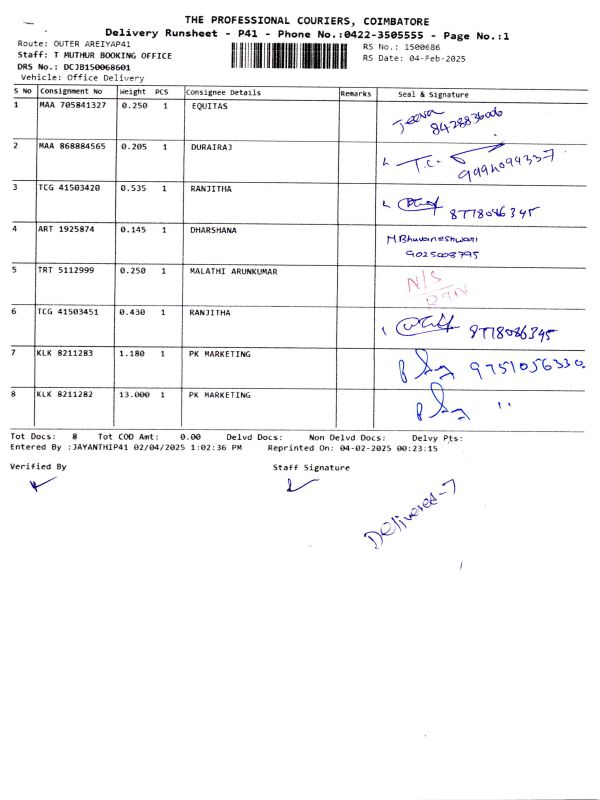 THE PROFESSIONAL COURIERS, COIMBATORE
Delivery Runsheet - P41 - Phone No.:0422-3505555 - Page No.:1
Route: OUTER AREIYAP41 RS No.: 1500686
Staff: T MUTHUR BOOKING OFFICE RS Date: 04-Feb-2025
DRS No.: DCJB150068601
Vehicle: Office Delivery
S No Consignment No Weight PCS Consignee Details Remarks Seal & Signature
1 MAA 705841327 0.250 1 EQUITAS Jeeva
8428836006
2 MAA 868884565 0.205 1 DURAIRAJ T.C.
9994094337
3 TCG 41503420 0.535 1 RANJITHA 8778086345
4 ART 1925874 0.145 1 DHARSHANA M.Bhuvaneshwari
9025008795
5 TRT 5112999 0.250 1 MALATHI ARUNKUMAR N/S
RTN
6 TCG 41503451 0.430 1 RANJITHA 8778086345
7 KLK 8211283 1.180 1 PK MARKETING 9751056330
8 KLK 8211282 13.000 1 PK MARKETING "
Tot Docs: 8 Tot COD Amt: 0.00 Delvd Docs: Non Delvd Docs: Delvy Pts:
Entered By :JAYANTHIP41 02/04/2025 1:02:36 PM Reprinted On: 04-02-2025 00:23:15
Verified By Staff Signature
Delivered-7